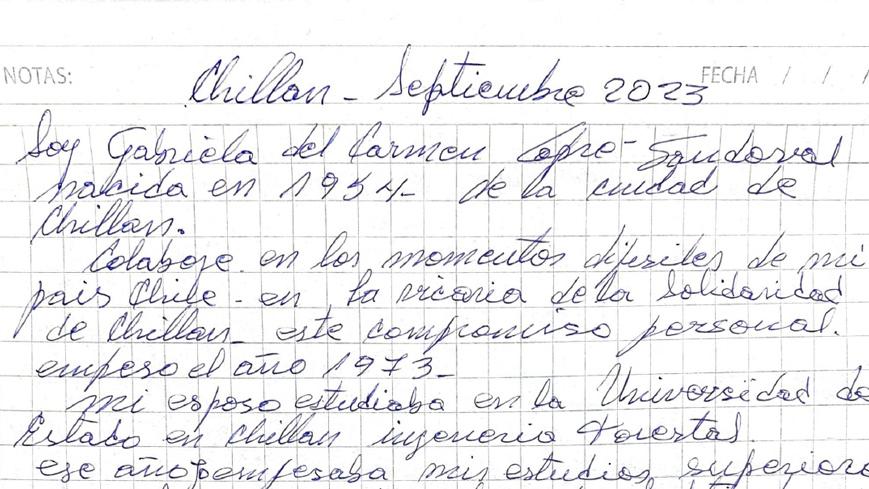 NOTAS:
FECHA / / /
Chillan - Septiembre 2023
Soy Gabriela del Carmen Sandoval
nacida en 1954- de la ciudad de
Chillan.
Colaboje en los momentos difesiles de mi
pais Chile - en la vicaria de la Solidaridad
de Chillan - este compromiso personal.
empeso el año 1973-
mi esposo estudiaba en la Universidad de
Estado en Chillan ingenieria Forestal.
ese año mis estudios superiore